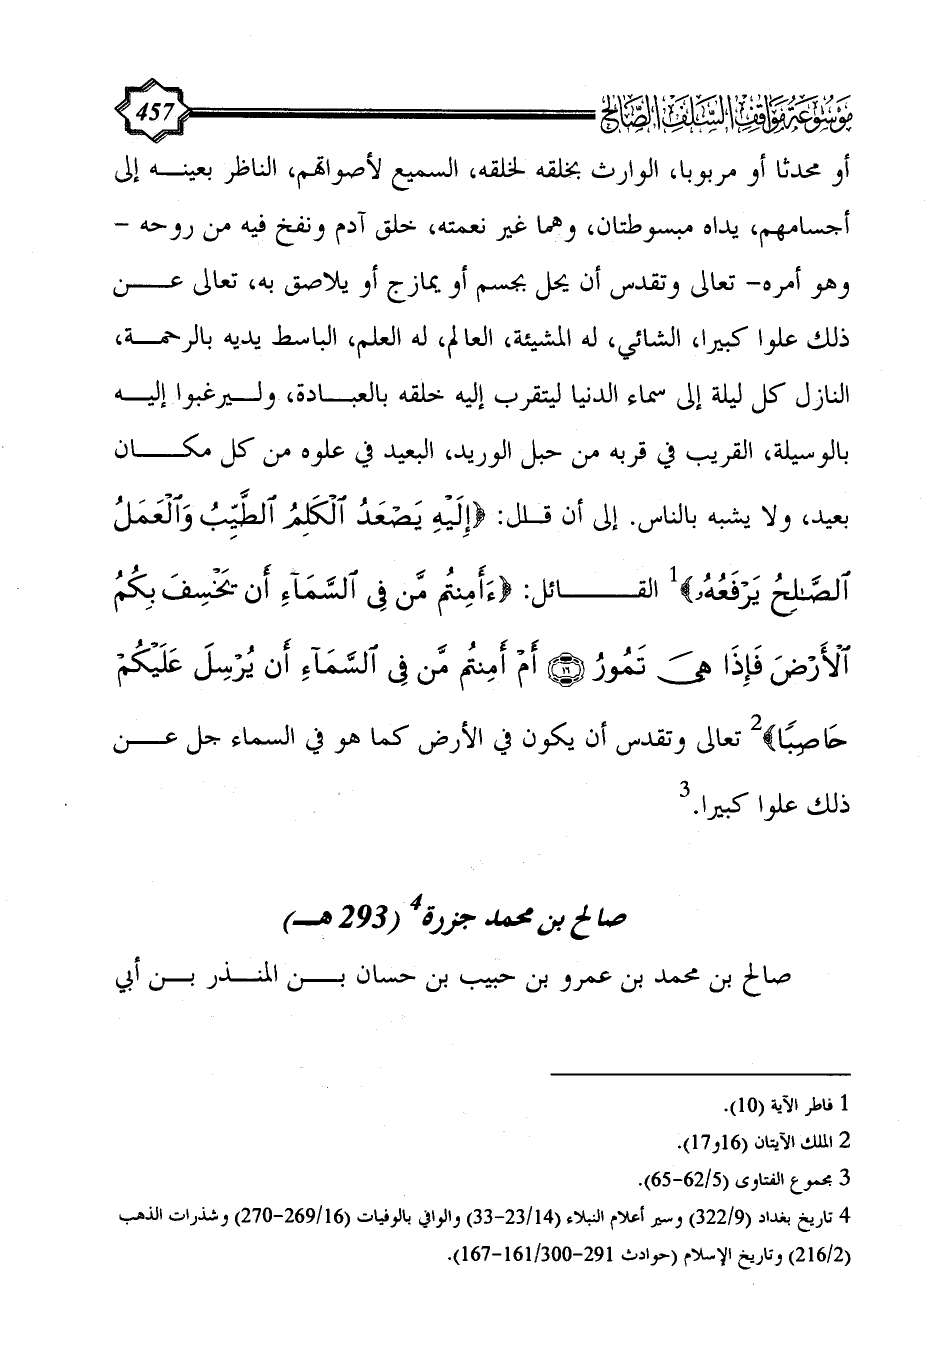 موسوعة مواقف السلف الصالح 457
أو محدثا أو مربوبا، الوارث بخلقه لخلقه، السميع لأصواتهم، الناظر بعينه إلى
أجسامهم، يداه مبسوطتان، وهما غير نعمته، خلق آدم ونفخ فيه من روحه -
وهو أمره- تعالى وتقدس أن يحل بجسم أو يمازج أو يلاصق به، تعالى عن
ذلك علوا كبيرا، الشائي، له المشيئة، العالم، له العلم، الباسط يديه بالرحمة،
النازل كل ليلة إلى سماء الدنيا ليتقرب إليه خلقه بالعبادة، وليرغبوا إليه
بالوسيلة، القريب في قربه من حبل الوريد، البعيد في علوه من كل مكان
بعيد، ولا يشبه بالناس. إلى أن قال: ﴿إِلَيْهِ يَصْعَدُ ٱلْكَلِمُ ٱلطَّيِّبُ وَٱلْعَمَلُ
ٱلصَّٰلِحُ يَرْفَعُهُۥ﴾1 القائل: ﴿ءَأَمِنتُم مَّن فِى ٱلسَّمَآءِ أَن يَخْسِفَ بِكُمُ
ٱلْأَرْضَ فَإِذَا هِىَ تَمُورُ ١٦ أَمْ أَمِنتُم مَّن فِى ٱلسَّمَآءِ أَن يُرْسِلَ عَلَيْكُمْ
حَاصِبًا﴾2 تعالى وتقدس أن يكون في الأرض كما هو في السماء جل عن
ذلك علوا كبيرا.3
صالح بن محمد جزرة4 (293 هـ)
صالح بن محمد بن عمرو بن حبيب بن حسان بن المنذر بن أبي
1 فاطر الآية (10).
2 الملك الآيتان (16و17).
3 مجموع الفتاوى (62/5-65).
4 تاريخ بغداد (322/9) وسير أعلام النبلاء (23/14-33) والوافي بالوفيات (269/16-270) وشذرات الذهب
(216/2) وتاريخ الإسلام (حوادث 291-161/300-167).